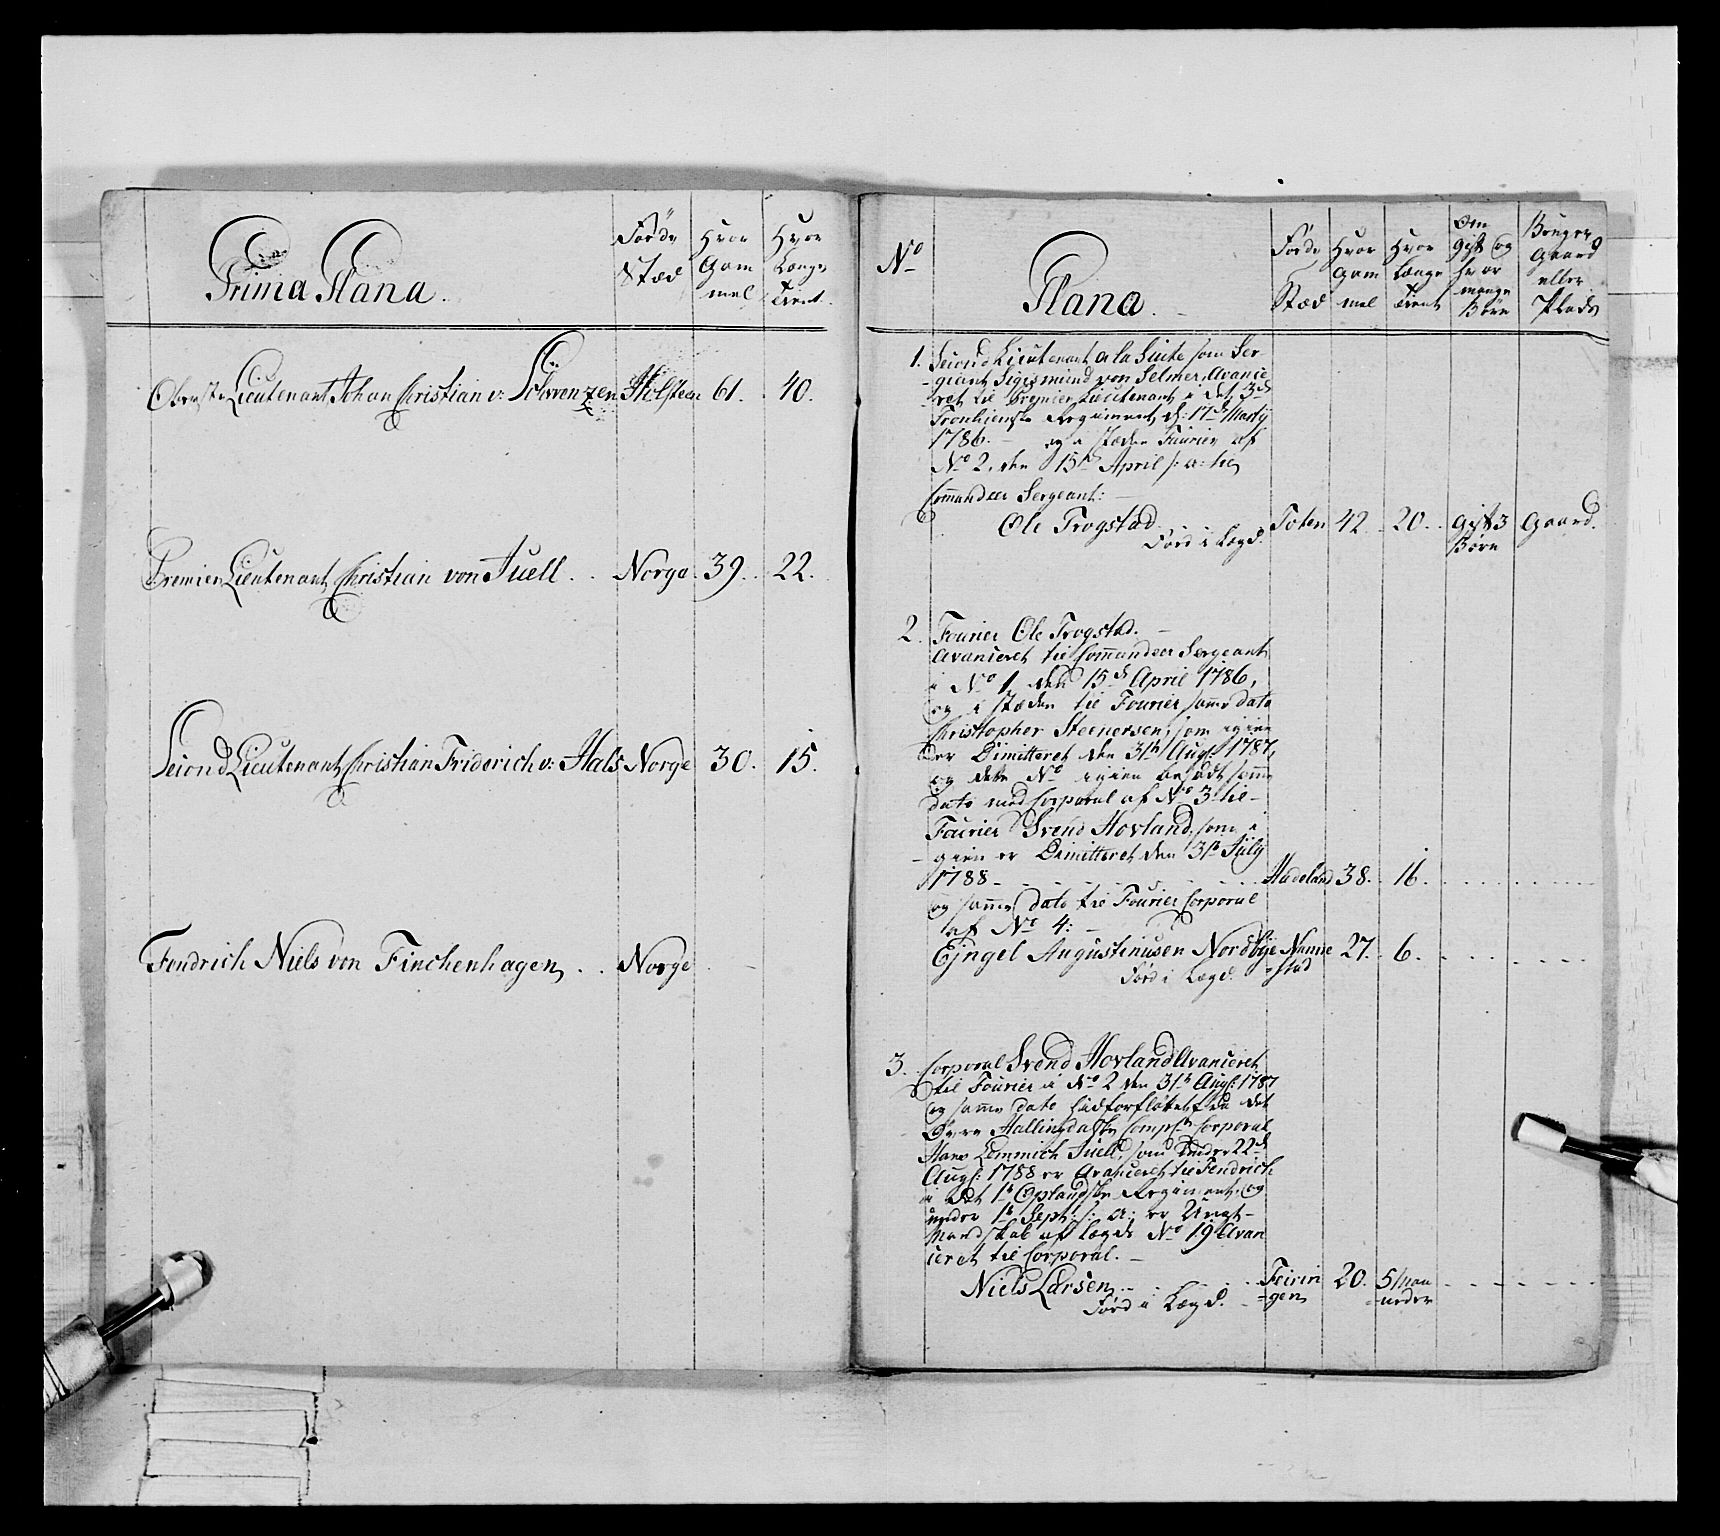 Prima Plana.
Føde Stæd
Hvor Gam mel
Hvor Længe Tient
Oberste Lieutenant Johan Christian v: Schwenzen Holsteen 61. 40.
Premier Lieutenant Christian von Juell . . Norge 39. 22.
Second Lieutenant Christian Friderich v: Hals Norge 30. 15.
Fendrich Niels von Finchenhagen . . Norge
No
Plana.
Føde Stæd
Hvor Gam mel
Hvor Længe Tient
Om gift og hvor mange Børn
Bruger Gaard eller Plads
1. Second Lieutenant a la Suite som Ser-
-geant Sigismund von Selmer, Avance
ret til Premier Lieutenant i det 3de
Tronhiemske Regiment d: 17de Martij
1786. og i stæden Fourier af
No 2, den 15de April s: a: til
Commandeer Sergeant:
Ole Trogstad Toten 42. 20. gift 3 Børn Gaard.
Førd i Lægd.
2. Fourier Ole Trogstad.
Avanceret til Commandeer Sergeant
i No 1 den 15de April 1786,
og i stæden til Fourier samme dato
Christopher Steenersen, som igien
er Dimitteret den 31te Augs: 1787,
og dette No igien besadt samme
dato med Corporal af No 3 til
Fourier Svend Hovland, som i
-gien er Dimitteret den 31te July
1788 Hadeland 38. 16.
og samme dato til Fourier Corporal
af No 4:
Ejngel Augustinusen Nordbye Nannestad 27. 6.
Førd i Lægd.
3. Corporal Svend Hovland Avanceret
til Fourier i No 2 den 31te Augs: 1787
og samme dato hidforfløttet fra det
Øvre Hallingdalske Compe: Corporal
Hans Lemmich Juell, som under 22de
Augs: 1788 er Avanceret til Fendrich
i det 1te Oplandske Regiment, og
under 1te Sept: s: a: er Ungt-
Mandskab af Lægds No 19 Avan
ceret til Corporal.
Niels Larsen Feirin
-gen 20. 5 Maa
-neder
Førd i Lægd.